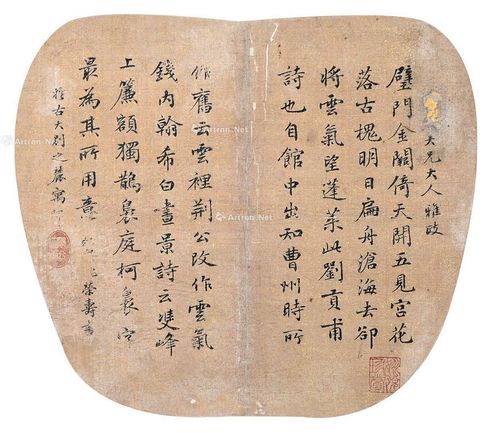 璧門金闕倚天開五見宮花
落古槐明日扁舟滄海去卻
將雲氣望蓬萊此劉貢甫
詩也自館中出知曹州時所
作舊云雲裡荊公改作雲氣
錢內翰希白晝景詩云雙峰
上簾額獨鵲裊庭柯裊字
最為其所用意
大兄大人雅政
榮壽
Artron.Net
Artron.Net
Artron.Net
Artron.Net